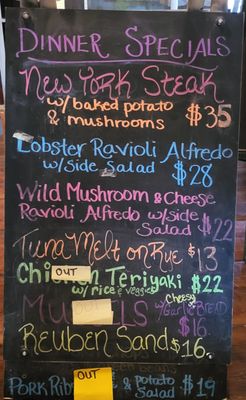 DINNER SPECIALS
New York Steak
w/ baked potato
& mushrooms $35
Lobster Ravioli Alfredo
w/ Side Salad $28
Wild Mushroom & Cheese
Ravioli Alfredo w/ side
Salad $22
Tuna Melt on Rye $13
OUT Teriyaki $22
w/ rice & veggies
cheesy
w/ Garlic BREAD
$16.
Reuben Sand $16.
OUT
PORK & Potato
Salad $19